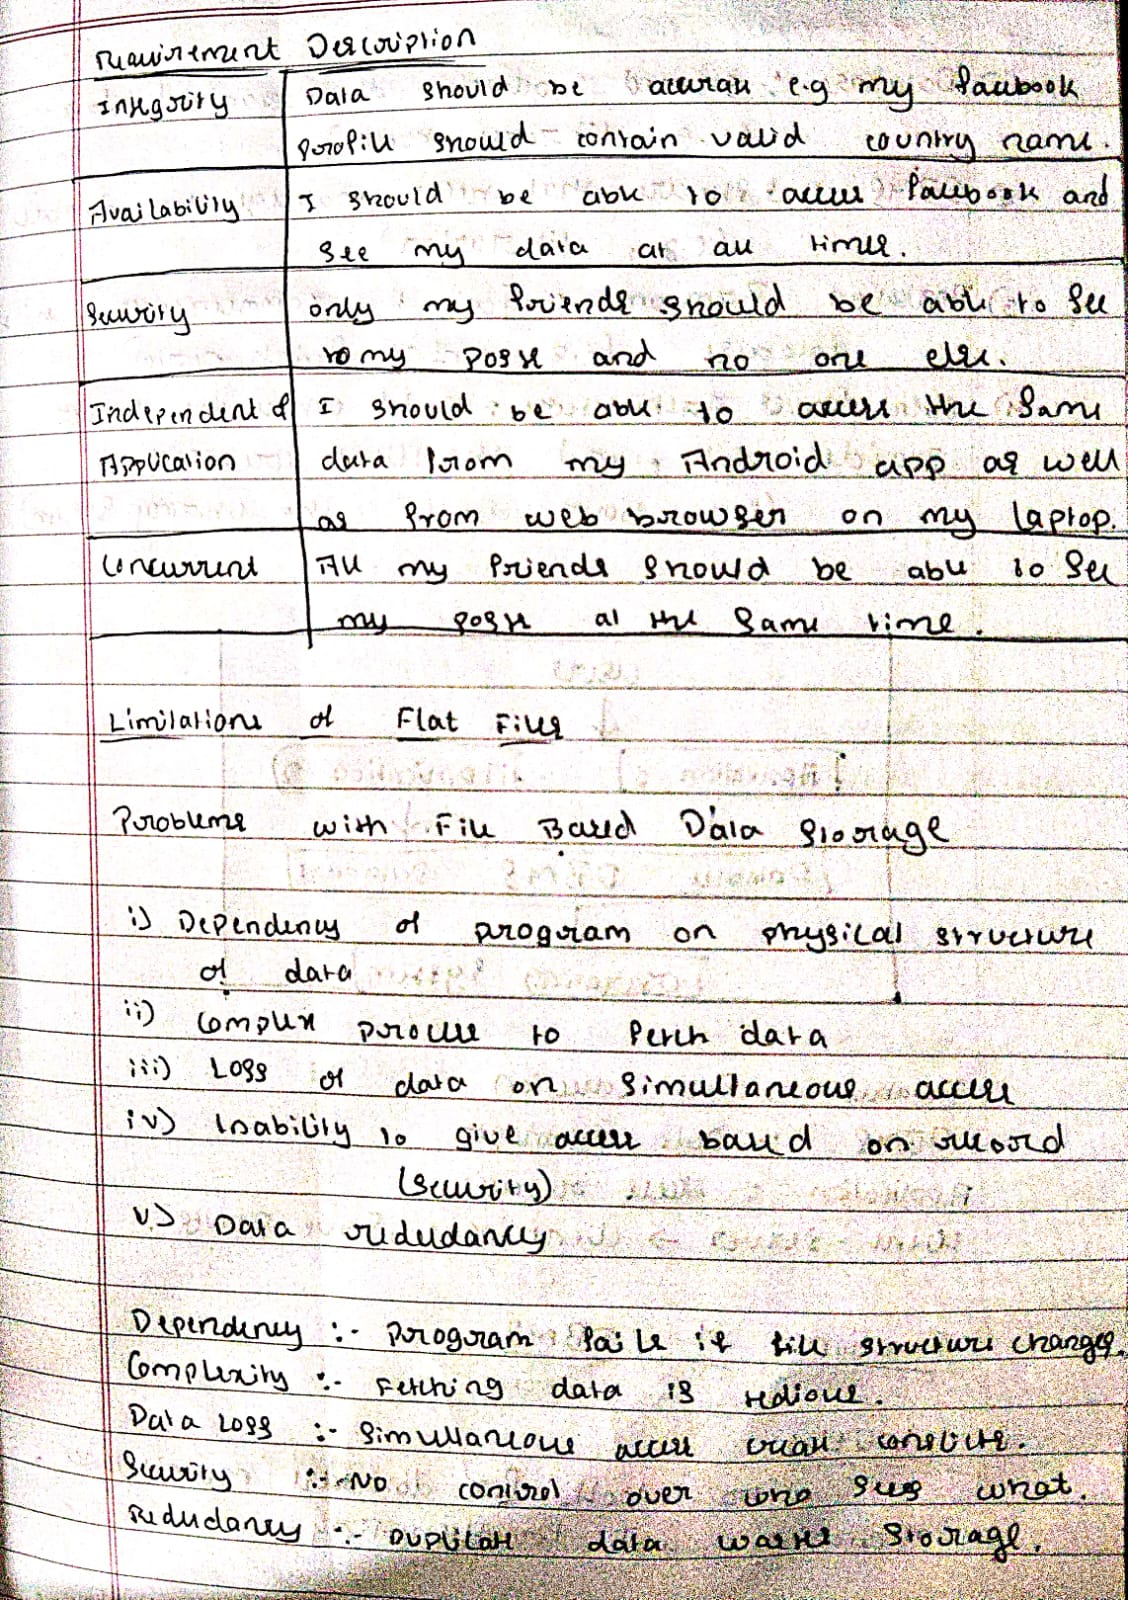 Requirement Description
Integrity Data should be accurate e.g my facebook
profile should contain valid country name.
Availability I should be able to access facebook and
see my data at all times.
Security only my friends should be able to see
to my posts and no one else.
Independent of I should be able to access the same
Application data from my Android app as well
as from web browser on my laptop.
Concurrent All my friends should be able to see
my posts at the same time.
Limitations of Flat Files
Problems with File Based Data Storage
i) Dependency of program on physical structure
of data
ii) Complex process to fetch data
iii) Loss of data on simultaneous access
iv) Inability to give access based on record
(security)
v) Data redudancy
Dependency :- Program fails if file structure changes.
Complexity :- Fetching data is tedious.
Data Loss :- Simultaneous access create conflicts.
Security :- No control over who sees what.
Redudancy :- Duplicate data wastes storage.